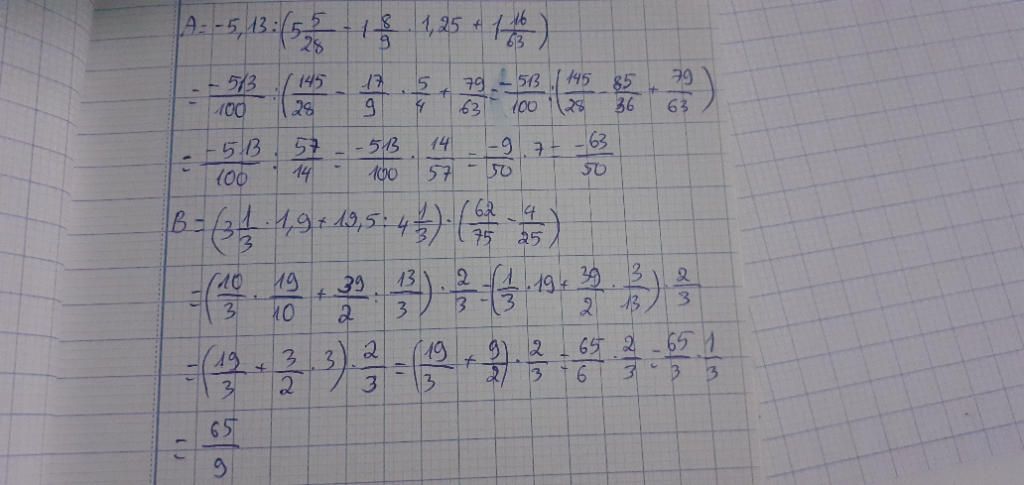 A = -5,13 : (5 5/28 - 1 8/9 · 1,25 + 1 16/63)
= -513/100 : (145/28 - 17/9 · 5/4 + 79/63 = -513/100 : (145/28 - 85/36 + 79/63)
= -513/100 : 57/14 = -513/100 · 14/57 = -9/50 · 7 = -63/50
B = (3 1/3 · 1,9 + 19,5 : 4 1/3) · (62/75 - 4/25)
= (10/3 · 19/10 + 39/2 : 13/3) · 2/3 = (1/3 · 19 + 39/2 · 3/13) · 2/3
= (19/3 + 3/2 · 3) · 2/3 = (19/3 + 9/2) · 2/3 = 65/6 · 2/3 = 65/3 · 1/3
= 65/9